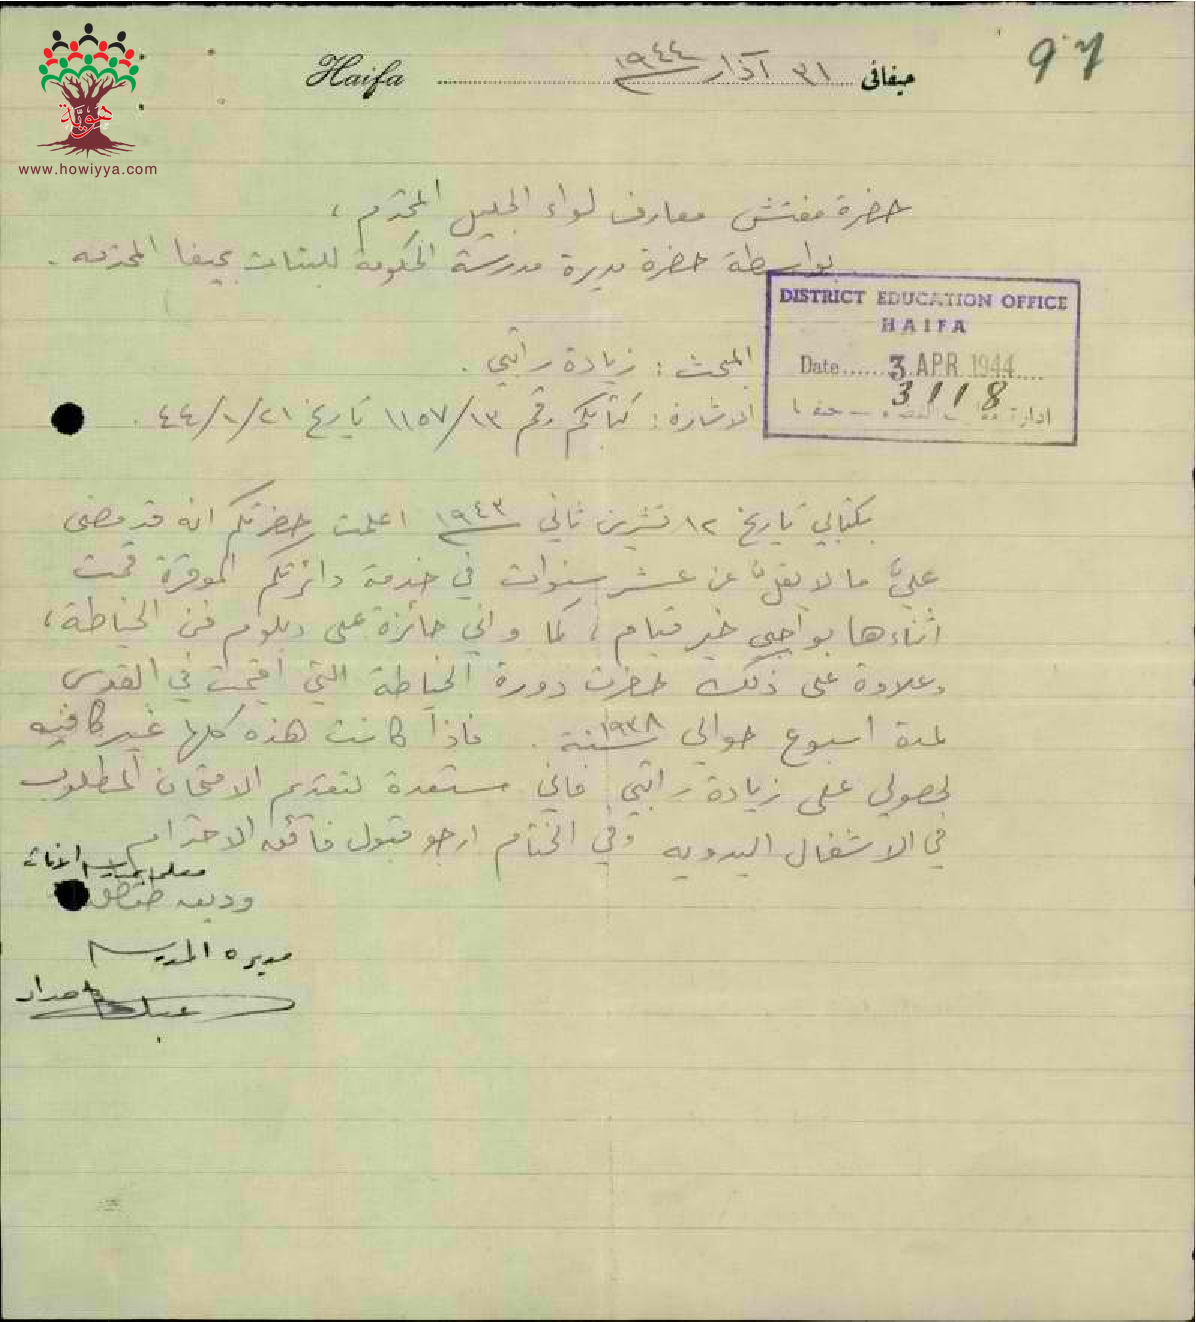 97
Haifa ........ ٣١ آذار ١٩٤٤ حيفا في
هويّة
www.howiyya.com
حضرة مفتش معارف لواء الجليل المحترم ،
بواسطة حضرة مديرة مدرسة الحكومة للبنات بحيفا المحترمه .
DISTRICT EDUCATION OFFICE
HAIFA
Date...... 3 APR 1944 ....
3118
ادارة حيفا
المبحث : زيادة راتبي .
الاشارة : كتابكم رقم ١١٥٧/١٣ تاريخ ٤٤/١/٢١ .
بكتابي تاريخ ١٢ تشرين ثاني ١٩٤٣ اعلمت حضرتكم انه قد مضى
عليّ ما لا يقلّ عن عشر سنوات في خدمة دائرتكم الموقرة قمت
اثناءها بواجبي خير قيام ، كما واني حائزة على دبلوم فن الخياطة ،
وعلاوة على ذلك حضرت دورة الخياطة التي اقيمت في القدس
لمدة اسبوع حوالي سنة ١٩٣٨ . فاذا كانت هذه كلها غير كافيه
لحصولي على زيادة راتبي فاني مستعدة لتقديم الامتحان المطلوب
في الاشغال اليدويه وفي الختام ارجو قبول فائق الاحترام
وديعه
مديره المدرسه
حداد